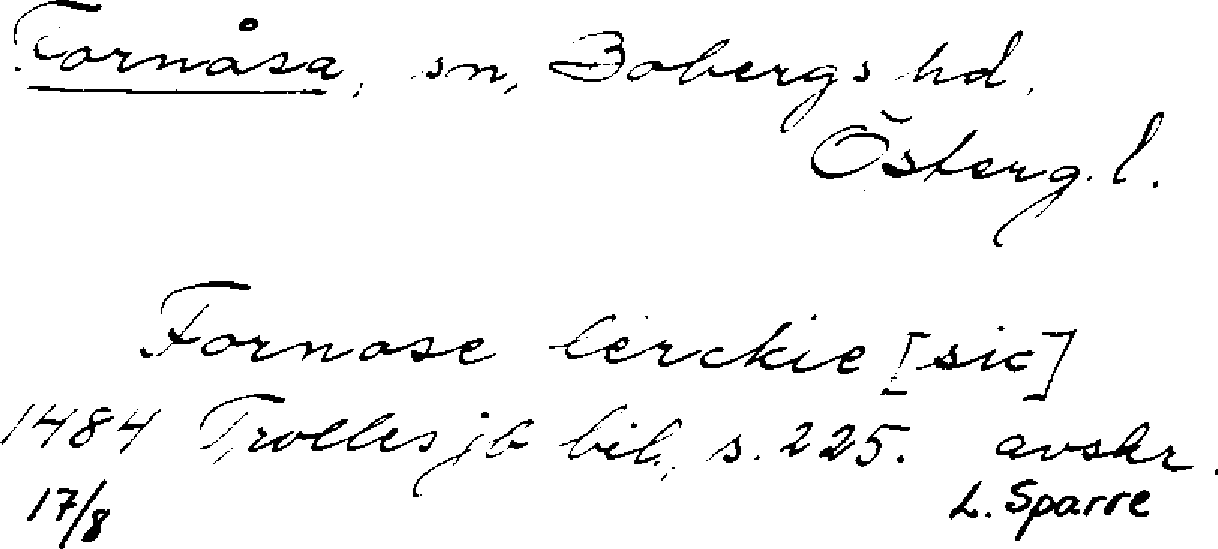 Fornåsa, sn, Bobergs hd.
Österg. l.
Fornose lerckie [sic]
1484 Trolles jb bil. s. 225. avskr.
17/8 L. Sparre